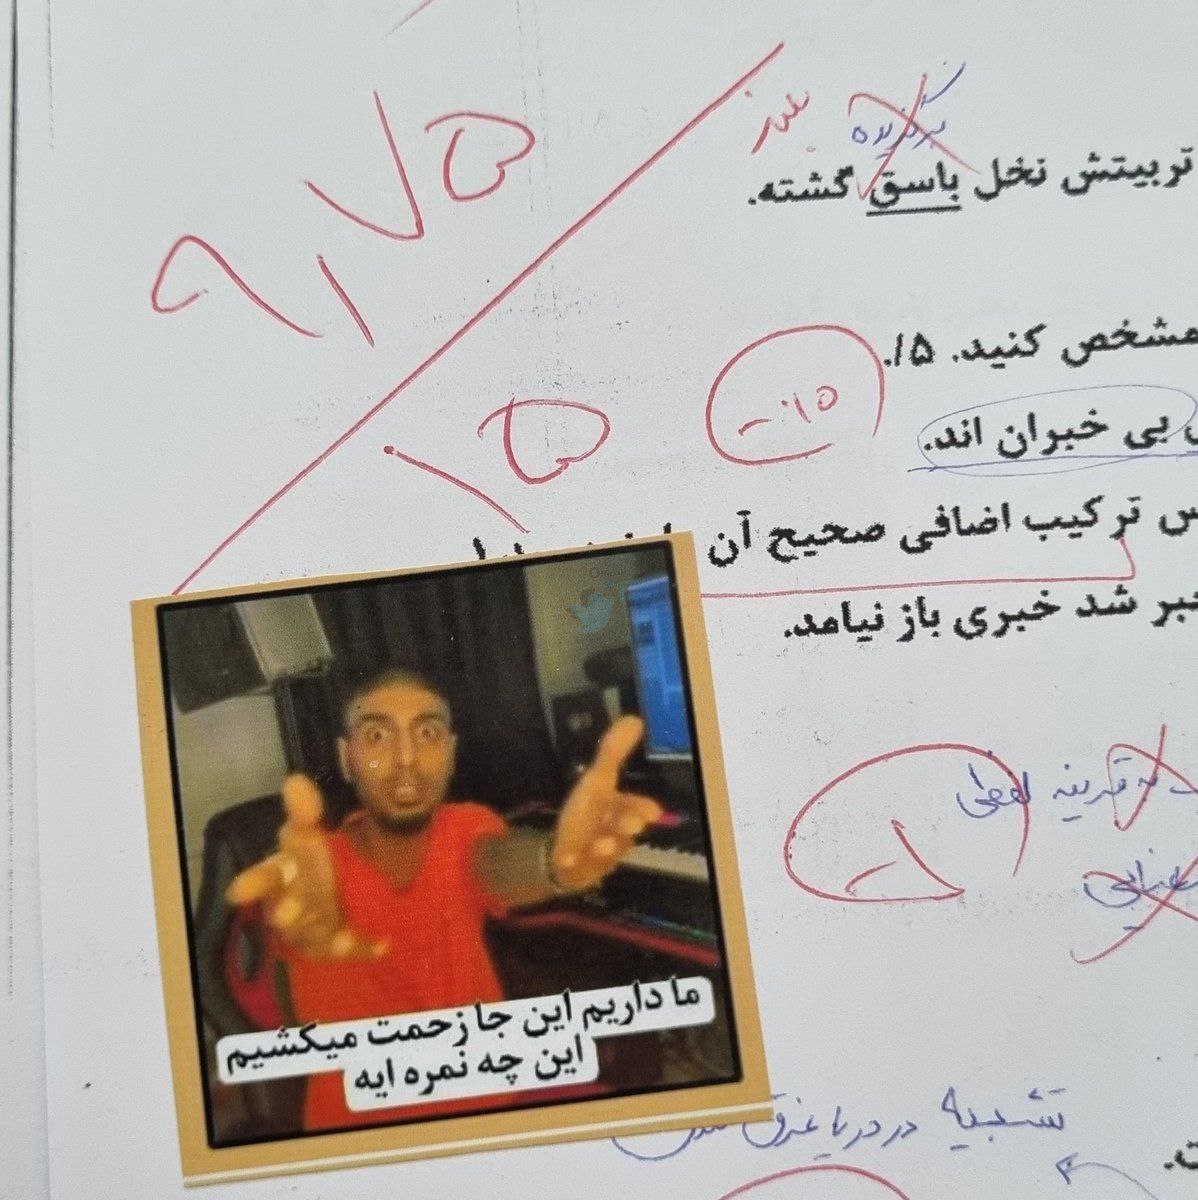 ۹,۷۵
۱۵
بلند
برگزیده
تربیتش نخل باسق گشته.
مشخص کنید. ۵/.
-۰/۵
بی خبران اند.
ترکیب اضافی صحیح آن
خبر شد خبری باز نیامد.
به قرینه لفظی
-۱
ما داریم این جا زحمت میکشیم
این چه نمره ایه
تشبیه در دریا غرق شدن